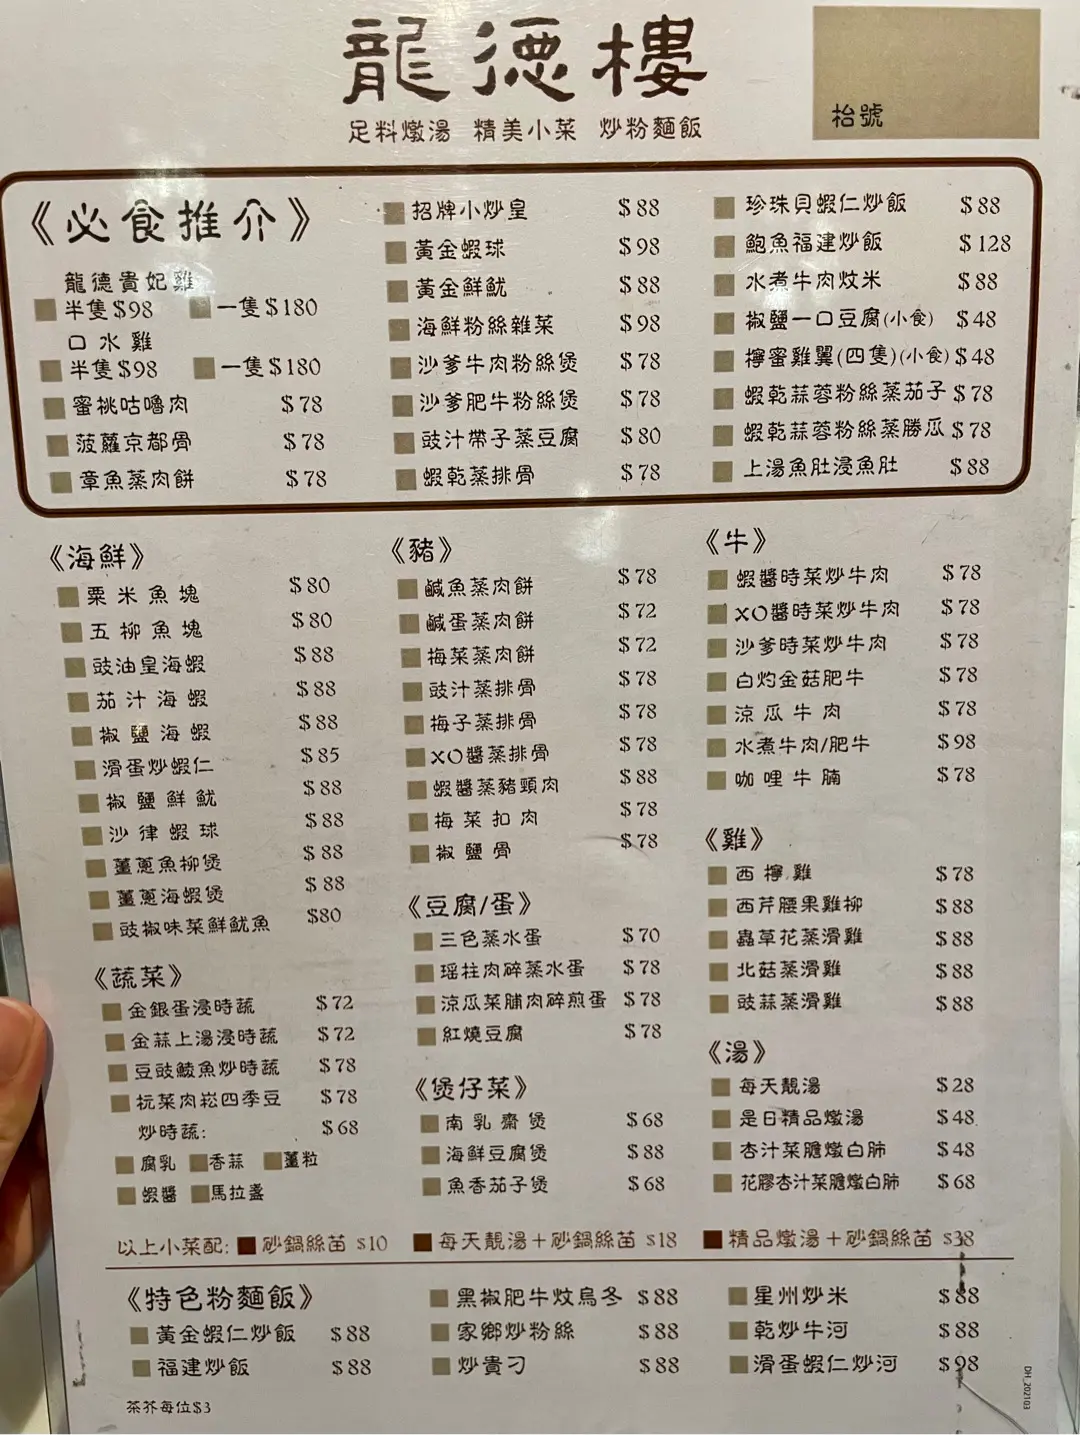 龍德樓
足料燉湯 精美小菜 炒粉麵飯
枱號
《必食推介》
龍德貴妃雞
半隻$98 一隻$180
口水雞
半隻$98 一隻$180
蜜桃咕嚕肉 $78
菠蘿京都骨 $78
章魚蒸肉餅 $78
招牌小炒皇 $88
黃金蝦球 $98
黃金鮮魷 $88
海鮮粉絲雜菜 $98
沙爹牛肉粉絲煲 $78
沙爹肥牛粉絲煲 $78
豉汁帶子蒸豆腐 $80
蝦乾蒸排骨 $78
珍珠貝蝦仁炒飯 $88
鮑魚福建炒飯 $128
水煮牛肉炆米 $88
椒鹽一口豆腐(小食) $48
檸蜜雞翼(四隻)(小食) $48
蝦乾蒜蓉粉絲蒸茄子 $78
蝦乾蒜蓉粉絲蒸勝瓜 $78
上湯魚肚浸魚肚 $88
《海鮮》
粟米魚塊 $80
五柳魚塊 $80
豉油皇海蝦 $88
茄汁海蝦 $88
椒鹽海蝦 $88
滑蛋炒蝦仁 $85
椒鹽鮮魷 $88
沙律蝦球 $88
薑蔥魚柳煲 $88
薑蔥海蝦煲 $88
豉椒味菜鮮魷魚 $80
《蔬菜》
金銀蛋浸時蔬 $72
金蒜上湯浸時蔬 $72
豆豉鯪魚炒時蔬 $78
杬菜肉崧四季豆 $78
炒時蔬: $68
腐乳 香蒜 薑粒
蝦醬 馬拉盞
《豬》
鹹魚蒸肉餅 $78
鹹蛋蒸肉餅 $72
梅菜蒸肉餅 $72
豉汁蒸排骨 $78
梅子蒸排骨 $78
XO醬蒸排骨 $78
蝦醬蒸豬頸肉 $88
梅菜扣肉 $78
椒鹽骨 $78
《豆腐/蛋》
三色蒸水蛋 $70
瑤柱肉碎蒸水蛋 $78
涼瓜菜脯肉碎煎蛋 $78
紅燒豆腐 $78
《煲仔菜》
南乳齋煲 $68
海鮮豆腐煲 $88
魚香茄子煲 $68
《牛》
蝦醬時菜炒牛肉 $78
XO醬時菜炒牛肉 $78
沙爹時菜炒牛肉 $78
白灼金菇肥牛 $78
涼瓜牛肉 $78
水煮牛肉/肥牛 $98
咖哩牛腩 $78
《雞》
西檸雞 $78
西芹腰果雞柳 $88
蟲草花蒸滑雞 $88
北菇蒸滑雞 $88
豉蒜蒸滑雞 $88
《湯》
每天靚湯 $28
是日精品燉湯 $48
杏汁菜膽燉白肺 $48
花膠杏汁菜膽燉白肺 $68
以上小菜配: 砂鍋絲苗 $10 每天靚湯+砂鍋絲苗 $18 精品燉湯+砂鍋絲苗 $38
《特色粉麵飯》
黃金蝦仁炒飯 $88
福建炒飯 $88
黑椒肥牛炆烏冬 $88
家鄉炒粉絲 $88
炒貴刁 $88
星州炒米 $88
乾炒牛河 $88
滑蛋蝦仁炒河 $98
茶芥每位$3
DH_202103